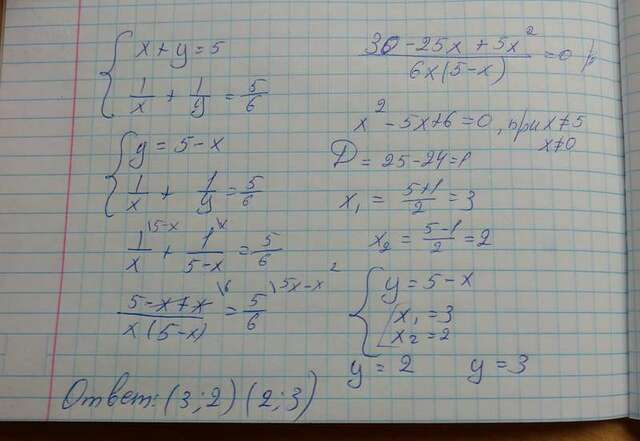 { x + y = 5
1/x + 1/y = 5/6
{ y = 5 - x
1/x + 1/y = 5/6
1/x \5-x + 1/(5-x) \x = 5/6
(5-x+x)/(x(5-x)) \6 = 5/6 \5x-x²
(30 - 25x + 5x²)/(6x(5-x)) = 0
x² - 5x + 6 = 0, при x ≠ 5
x ≠ 0
D = 25 - 24 = 1
x₁ = (5+1)/2 = 3
x₂ = (5-1)/2 = 2
{ y = 5 - x
[ x₁ = 3
x₂ = 2
y = 2 y = 3
Ответ: (3; 2) (2; 3)